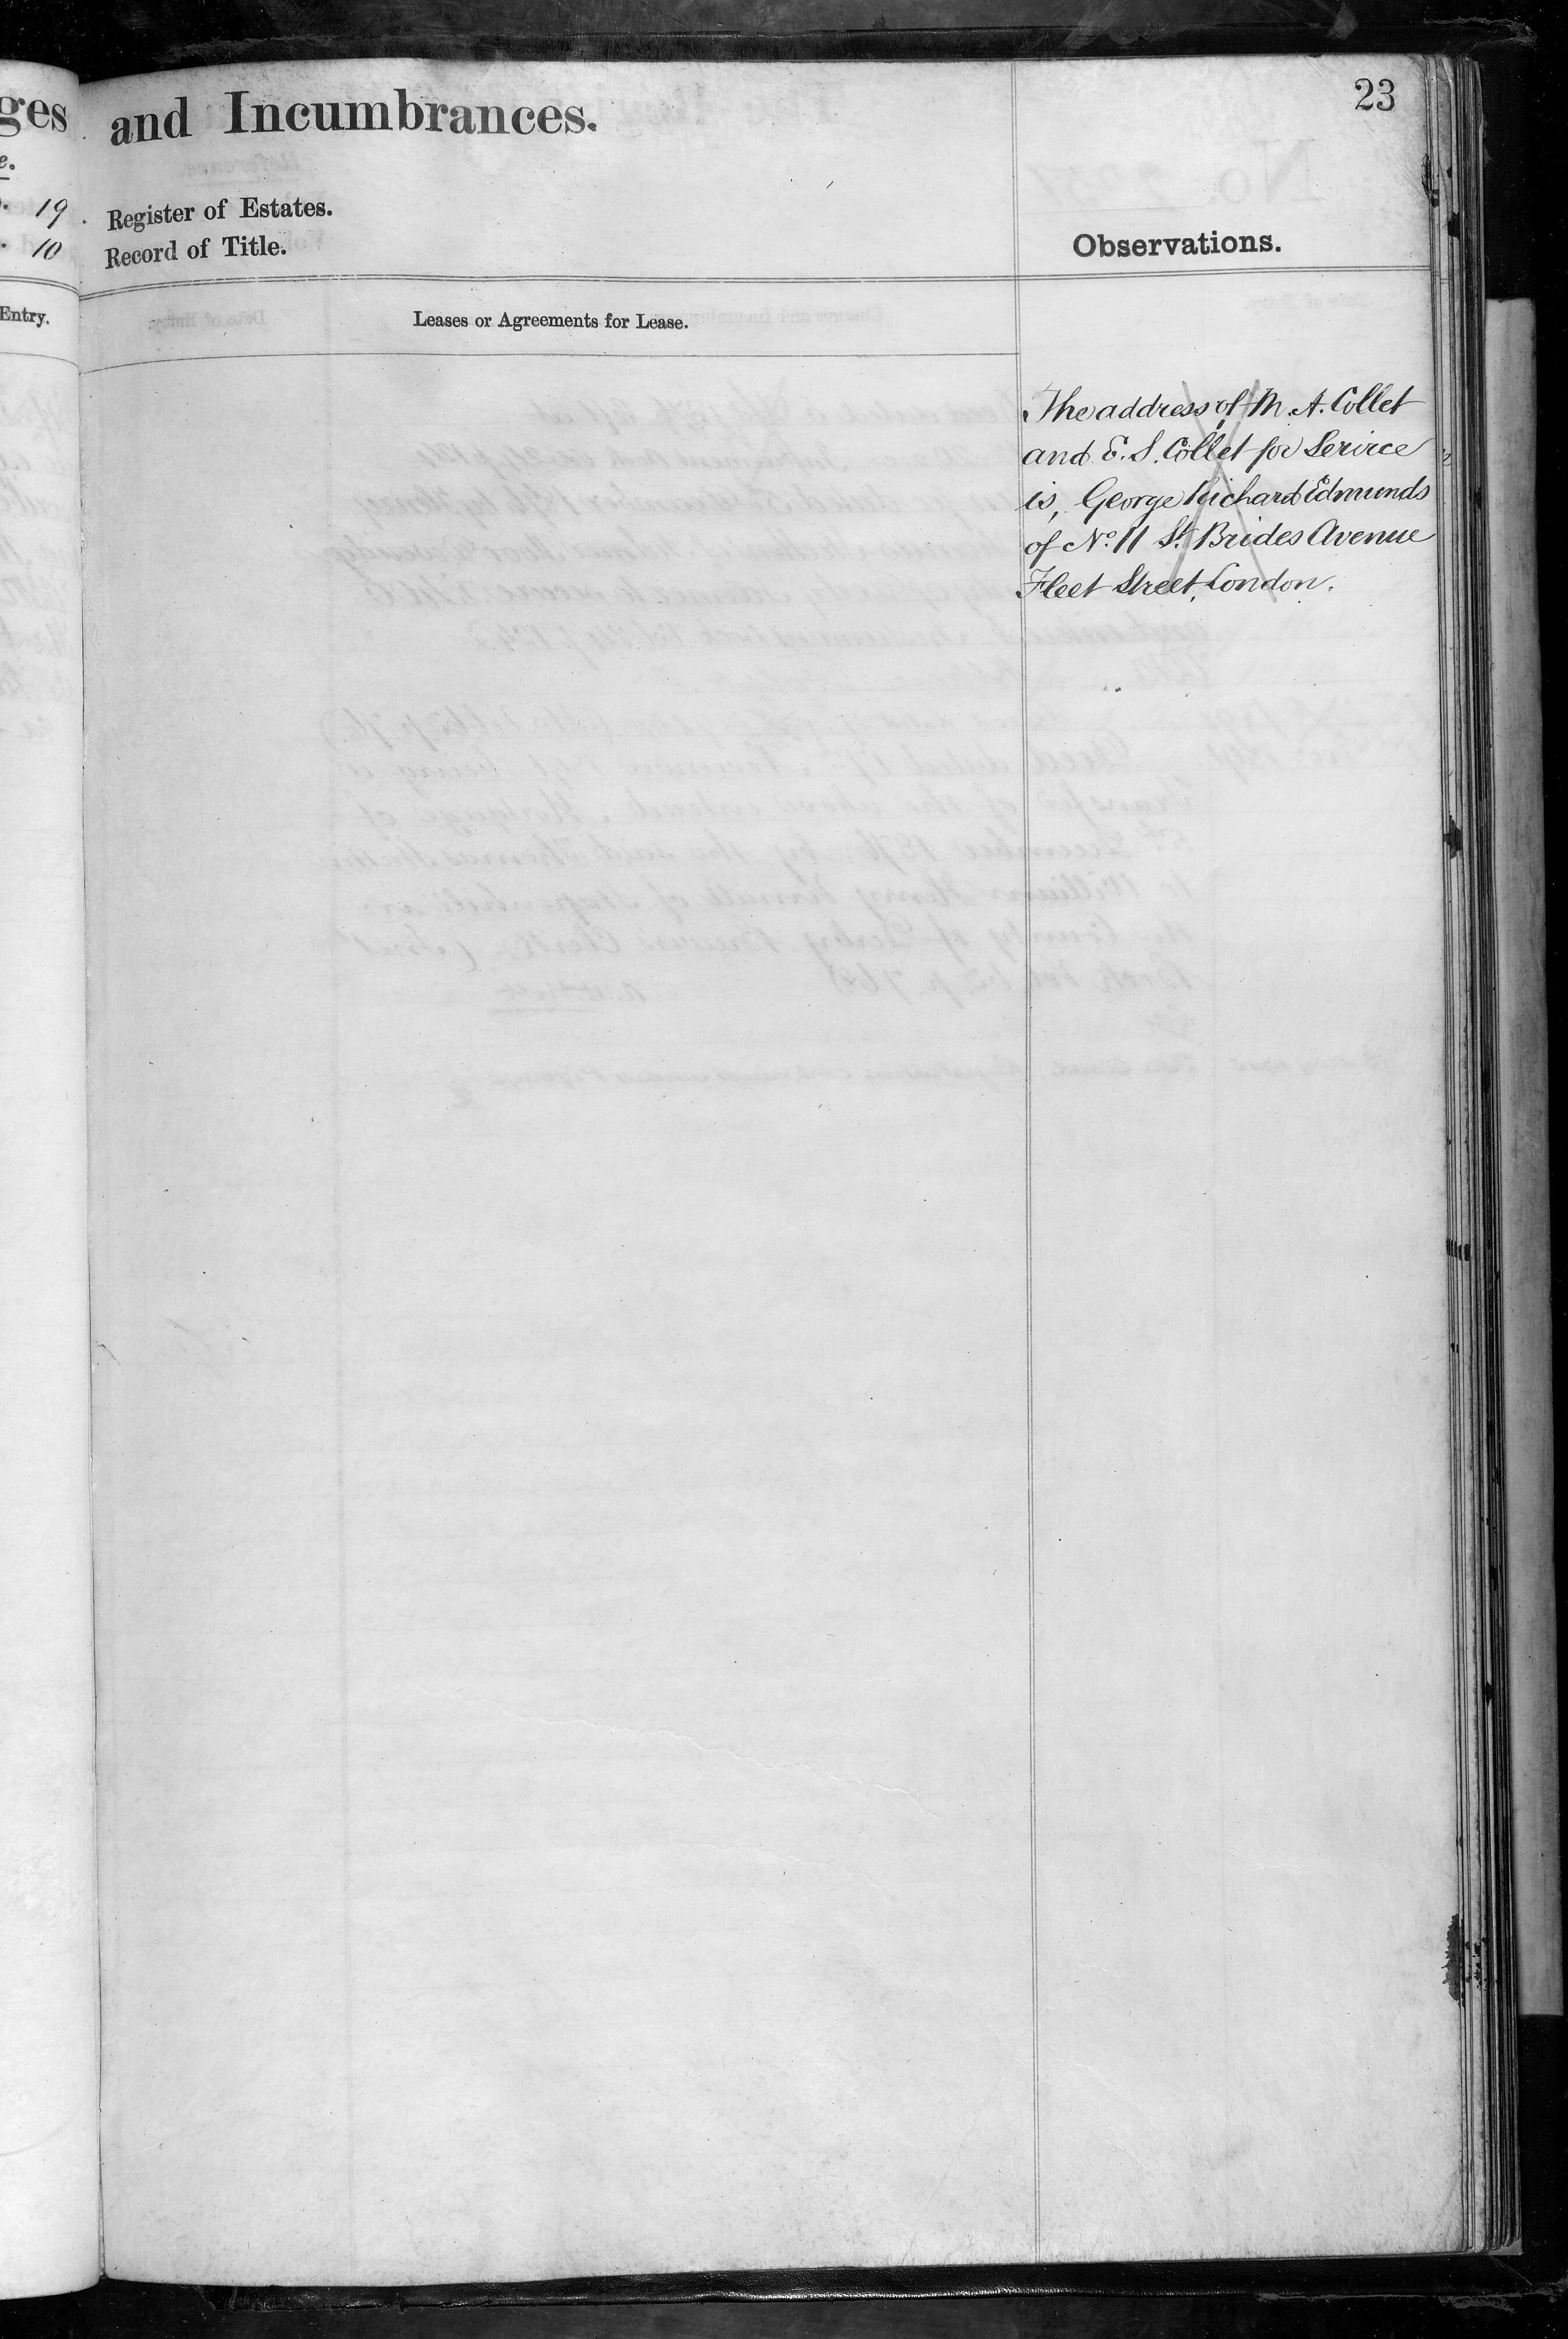 ges and Incumbrances.
23
e.
19. Register of Estates.
10 Record of Title.
Observations.
Entry.
Leases or Agreements for Lease.
The address of M. A. Collet
and E. S. Collet for Serivce
is, George Richard Edmunds
of No. 11 St. Brides Avenue
Fleet Street, London.